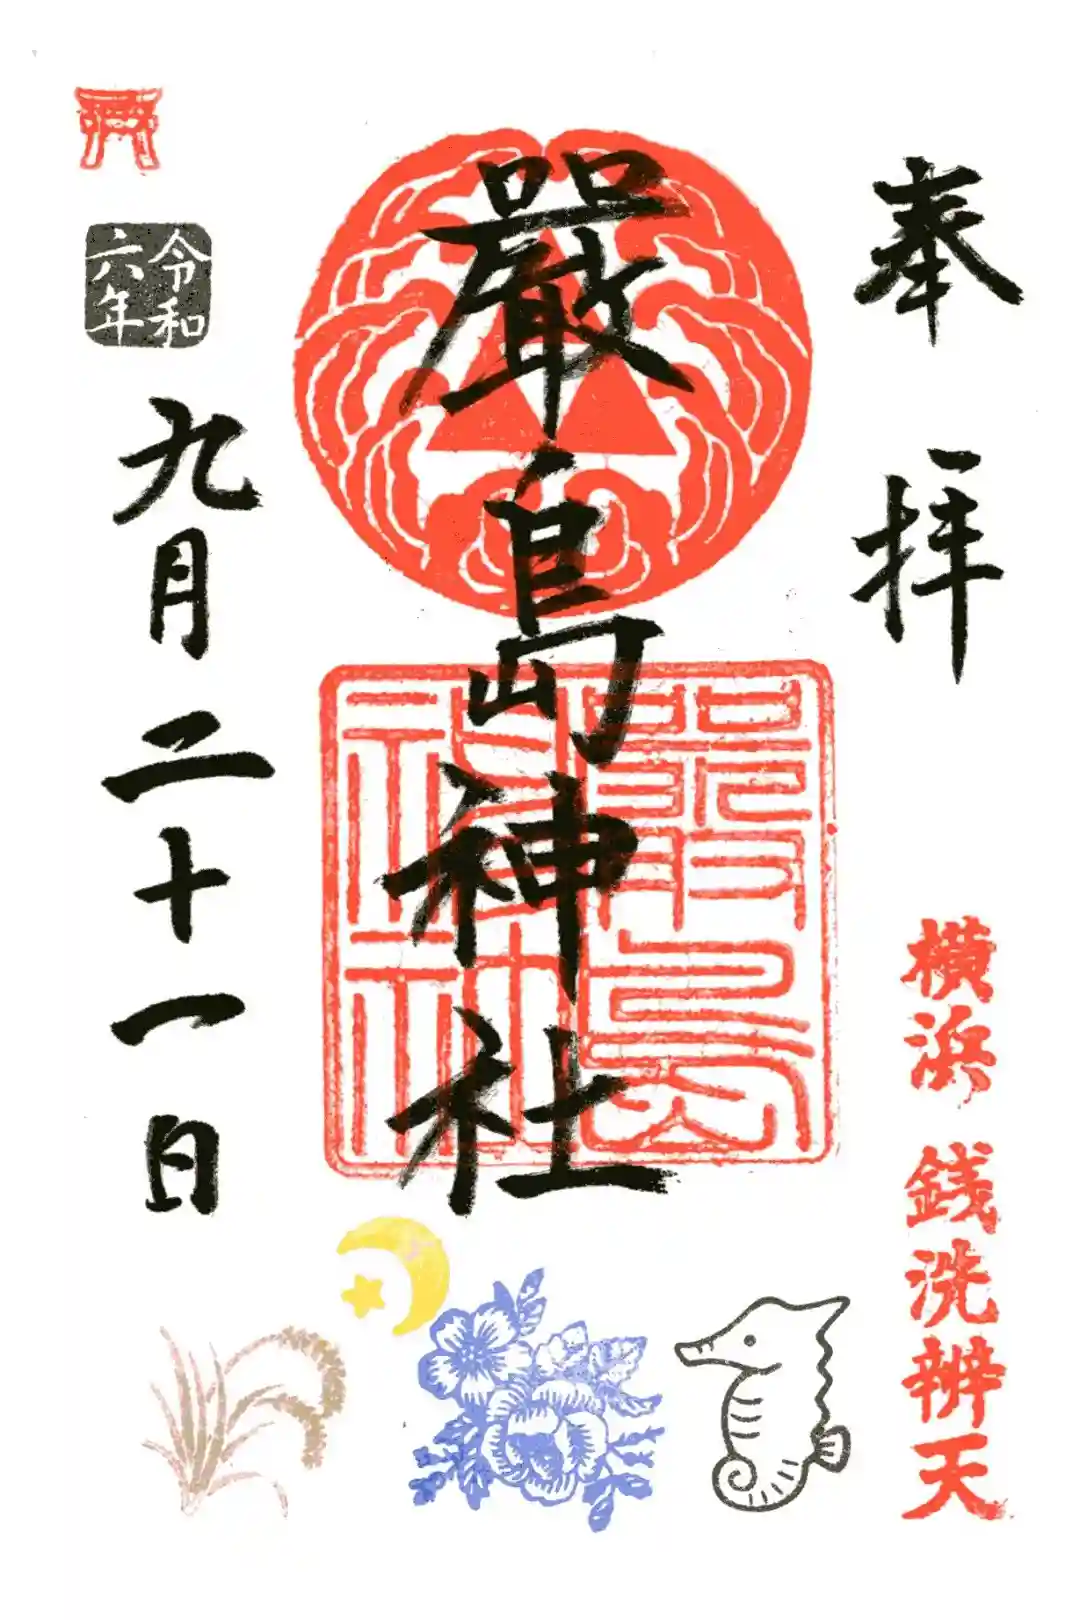 奉拝
横浜 銭洗辨天
嚴島神社
嚴島
神社
令和
六年
九月二十一日